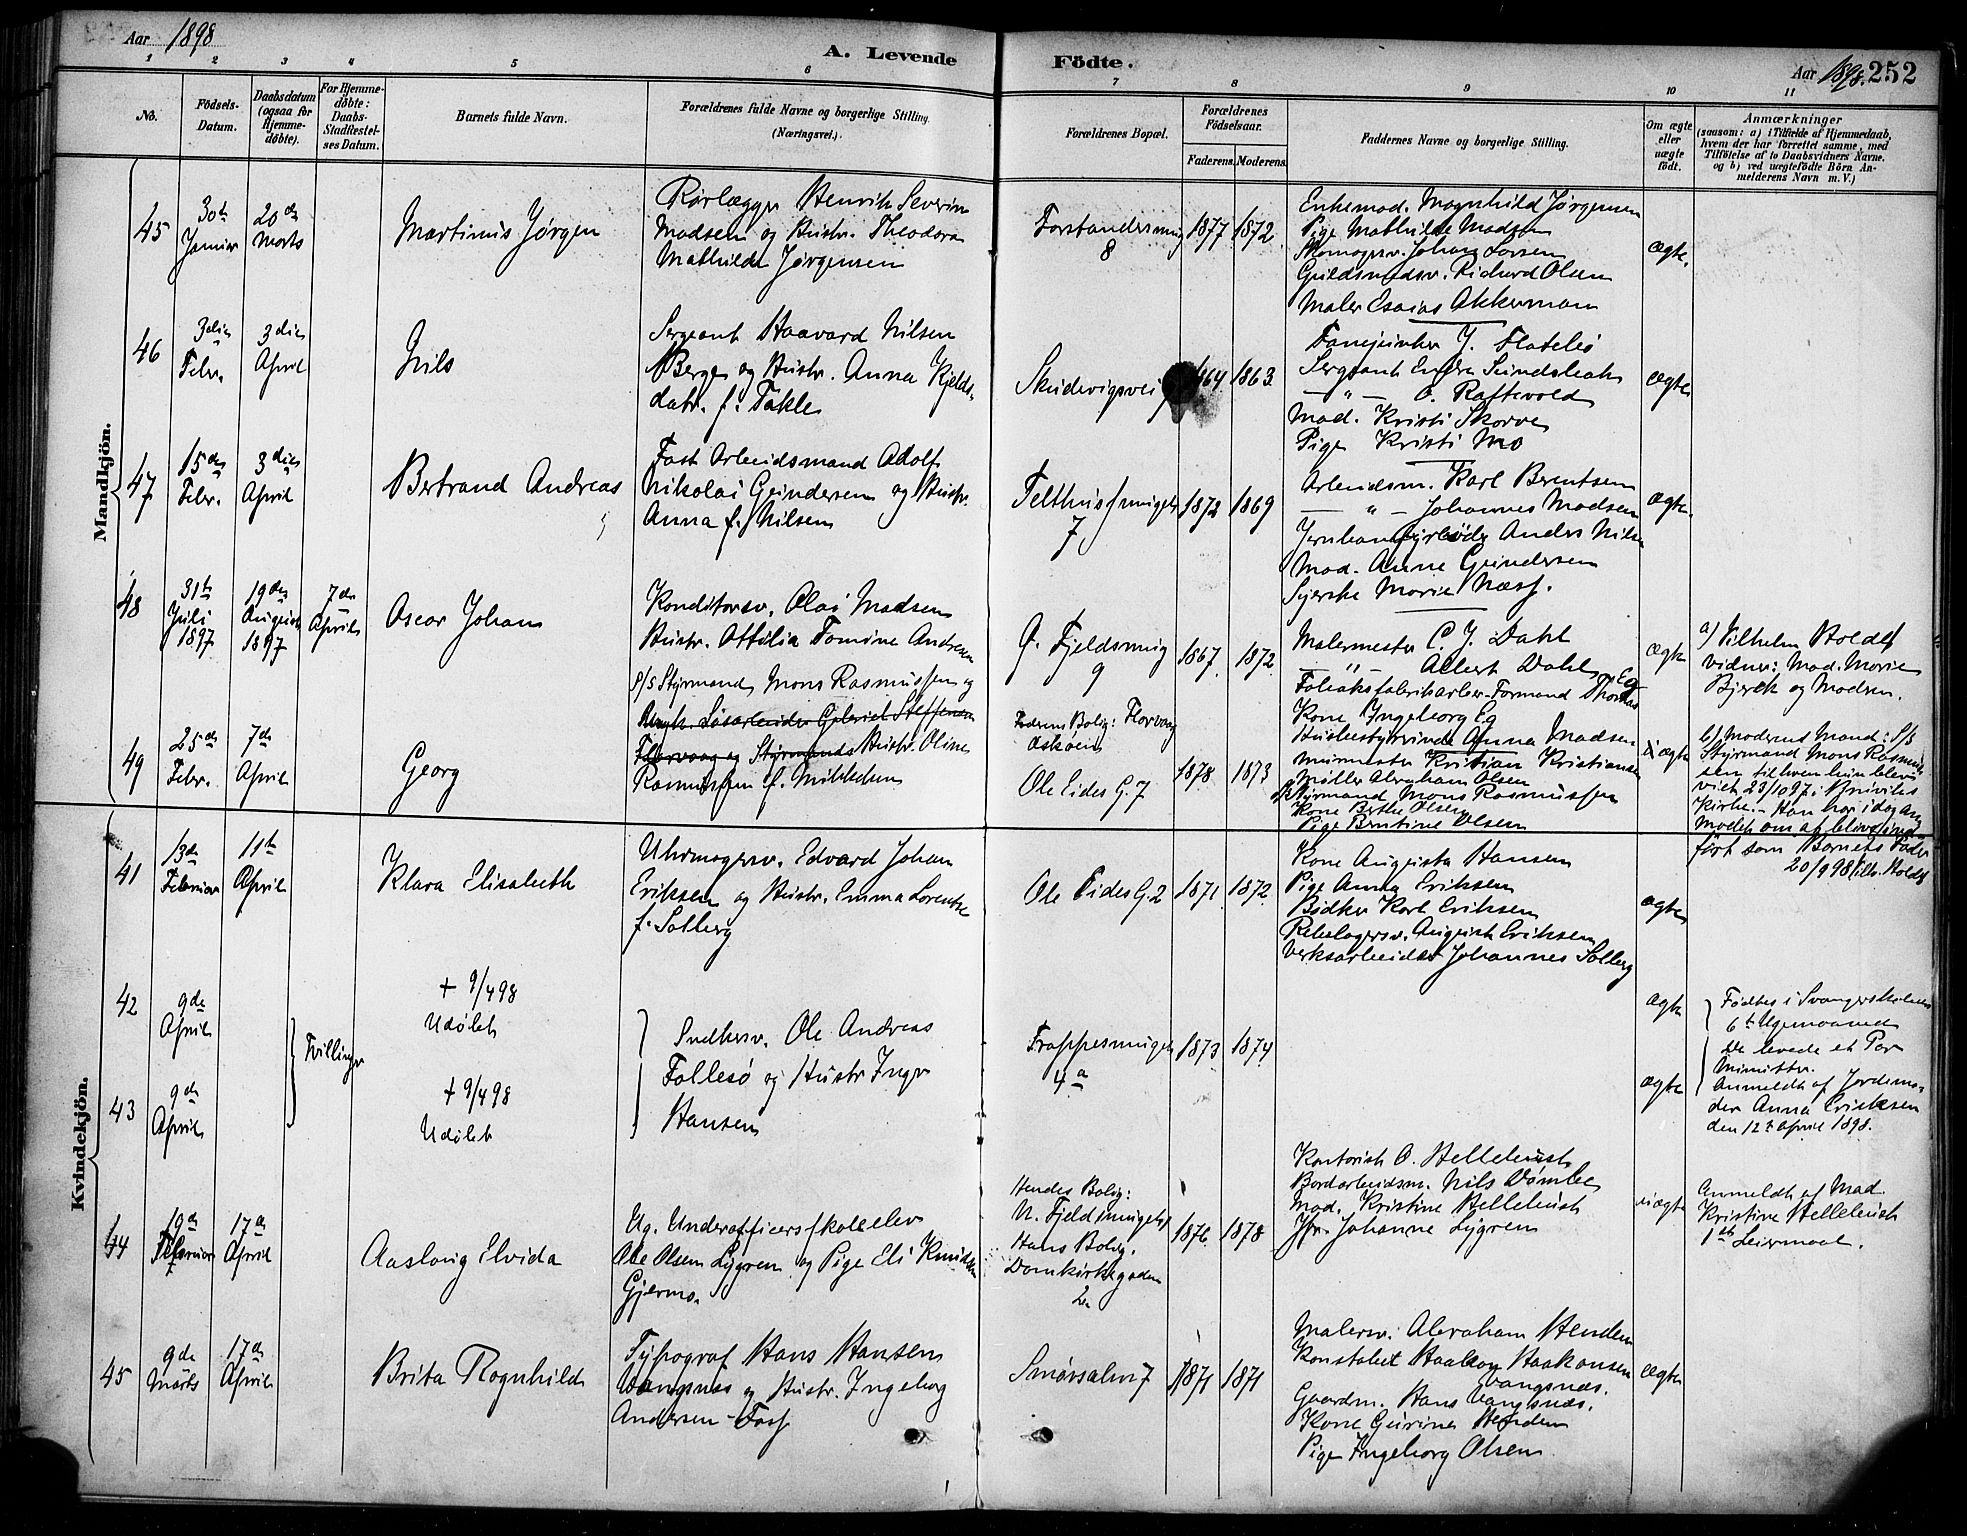 Aar 1898
A. Levende Födte.
Aar 1898. 252
1 2 3 4 5 6 7 8 9 10 11
No.
Födsels-Datum.
Daabsdatum (ogsaa for Hjemme-døbte).
For Hjemme-døbte: Daabs-Stadfæstel-ses Datum.
Barnets fulde Navn.
Forældrenes fulde Navne og borgerlige Stilling.
(Næringsvei.)
Forældrenes Bopæl.
Forældrenes Födselsaar.
Faderens. Moderens.
Faddernes Navne og borgerlige Stilling.
Om ægte eller uægte födt.
Anmærkninger
(saasom: a) i Tilfælde af Hjemmedaab,
hvem der har forrettet samme, med
Tilföielse af to Daabsvidners Navne.
og b) ved uægtefödte Börn An-
melderens Navn m. V.)
Mandkjön.
45
30te Januar
20de Marts
Martinus Jørgen
Rørlægger Henrik Severin
Madsen og Hustr. Theodora
Mathilde Jørgensen
Forstandersmug
8
1877 1872
Enkemad. Magnhild Jørgensen
Pige Mathilde Madsen
Skomagersv. Johan Larsen
Guldsmedsv. Richard Olsen
Maler Esaias Akkerman
ægte.
46
3die Febr.
3die April
Nils
Sergeant Haavard Nilsen
Berge og Hustr. Anna Kjelds-
datr. f. Takle
Skudevigsvei
1863.
J. Flatelø
Sergeant
— " — O. Raftevold
Mad. Kristi Skorve
Pige Kristi Mo
ægte
47
15de Febr.
3die April
Bertrand Andreas
Fast Arbeidsmand Adolf
Nikolai Gundersen og Hustr.
Anna f. Nilsen
Telthussmuget
7
1872 1869
Arbeidsm. Karl Berntsen
— " — Johannes Madsen
Anders Nilsen
Mad. Anne Gundersen
Syerske Marie Næss.
ægte.
48
31te Juli 1897
19de August 1897
7de April
Oscar Johan
Konditorsv. Olai Madsen
Hustr. Attilia Tomine Andresen
Ø. Fjeldsmug
9
1867. 1872.
Malermester C. J. Dahl
— " — Albert Dahl
Tobaksfabrikarbei. Formand Thomas Eg
Kone Ingeborg Eg
Husbestyrerinde Anna Madsen
ægte
a) Vilhelm Holdt
Vidner: Mad. Marie
Bjerck og Madsen.
49
25de Febr.
7de April
Georg
S/S Styrmand Mons Rasmussen og
Ungk. Løsarbeider Gabriel Steffensen
Florvaag og Styrmands Hustr. Oline
Rasmussen f. Mikkelsen
Faderens Bolig: Florvaag
Askøen
Ole Eides G. 7
1878. 1873
Murmester Kristian Kristiansen
Møller Abraham Olsen
Styrmand Mons Rasmussen
Kone Berthe Olsen
Pige Berntine Olsen
uægte
b) Moderens Mand: S/S
Styrmand Mons Rasmus-
sen til hvem hun blev
viet 23/10 97 i
Kirke. – Han har idag an-
modet om at blive ind-
ført som Barnets Fader
20/9 98 Vilh. Holdt
Kvindekjön.
41
13de Februar
11te April
Klara Elisabeth
Uhrmagersv. Edvard Johan
Eriksen og Hustr. Emma Lorentze
f. Solberg
Ole Eides G. 2
1871. 1872.
Kone Augusta Hansen
Pige Anna Eriksen
Bødker Karl Eriksen
Rebslagersv. August Eriksen
Verksarbeider Johannes Solberg
ægte
42
9de April
+ 9/4 98
Udøbt
43
9de April
+ 9/4 98
Udøbt
Tvillinger
Snedkersv. Ole Andreas
Follesø og Hustr. Inger
Hansen
Trappesmuget
4a
1873 1874
ægte
ægte
Fødtes i Svangerskabets
6te Ugemaaned
De levede et Par
Minutter.
Anmeldt af Jordemo-
der Anna Ericksen
den 12te April 1898.
44
19de Februar
17de April
Aaslaug Elvida
Ug. Underofficersskoleelev
Ole Olsen Lygren og Pige Eli Knudsen
Gjermo.
Hendes Bolig:
N. Fjeldsmuget
Hans Bolig.
Domkirkegaden
2.
1876. 1878
Kontorist O. Hellebust
Bordarbeidsm. Nils Dømbe
Mad. Kristine Hellebust
Jfr. Johanne Lygren
uægte
Anmeldt af Mad
Kristine Hellebust
1ste Leiermaal.
45
9de Marts
17de April
Brita Ragnhild
Typograf Hans Hansen
Vangsnes og Hustr. Ingeborg
Andersen Foss
Smørsalm. 7
1871 1871
Malersv. Abraham Henden
Konstabel Haakon Haakonsen
Vangsnæs.
Gaardm. Hans Vangsnæs.
Kone Gurine Henden
Pige Ingeborg Olsen
ægte